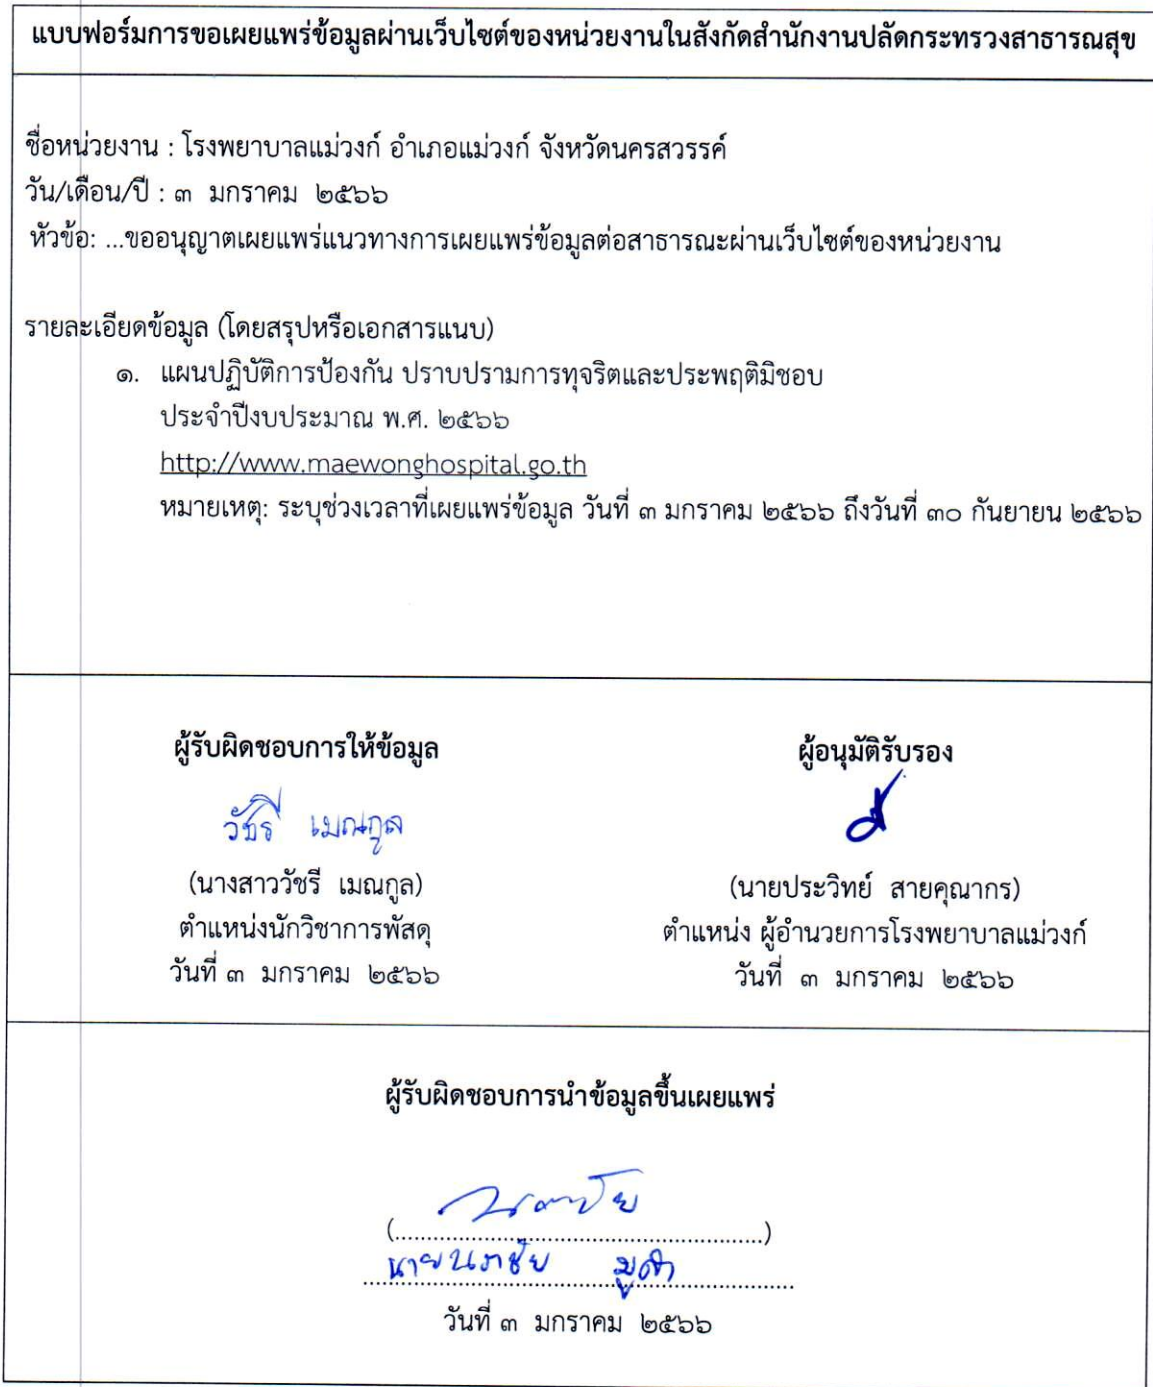 แบบฟอร์มการขอเผยแพร่ข้อมูลผ่านเว็บไซต์ของหน่วยงานในสังกัดสำนักงานปลัดกระทรวงสาธารณสุข
ชื่อหน่วยงาน : โรงพยาบาลแม่วงก์ อำเภอแม่วงก์ จังหวัดนครสวรรค์
วัน/เดือน/ปี : ๓ มกราคม ๒๕๖๖
หัวข้อ: ...ขออนุญาตเผยแพร่แนวทางการเผยแพร่ข้อมูลต่อสาธารณะผ่านเว็บไซต์ของหน่วยงาน
รายละเอียดข้อมูล (โดยสรุปหรือเอกสารแนบ)
๑. แผนปฏิบัติการป้องกัน ปราบปรามการทุจริตและประพฤติมิชอบ
ประจำปีงบประมาณ พ.ศ. ๒๕๖๖
http://www.maewonghospital.go.th
หมายเหตุ: ระบุช่วงเวลาที่เผยแพร่ข้อมูล วันที่ ๓ มกราคม ๒๕๖๖ ถึงวันที่ ๓๐ กันยายน ๒๕๖๖
ผู้รับผิดชอบการให้ข้อมูล
วัชรี เมณกูล
(นางสาววัชรี เมณกูล)
ตำแหน่งนักวิชาการพัสดุ
วันที่ ๓ มกราคม ๒๕๖๖
ผู้อนุมัติรับรอง
(นายประวิทย์ สายคุณากร)
ตำแหน่ง ผู้อำนวยการโรงพยาบาลแม่วงก์
วันที่ ๓ มกราคม ๒๕๖๖
ผู้รับผิดชอบการนำข้อมูลขึ้นเผยแพร่
(..............................................................)
นาย
วันที่ ๓ มกราคม ๒๕๖๖